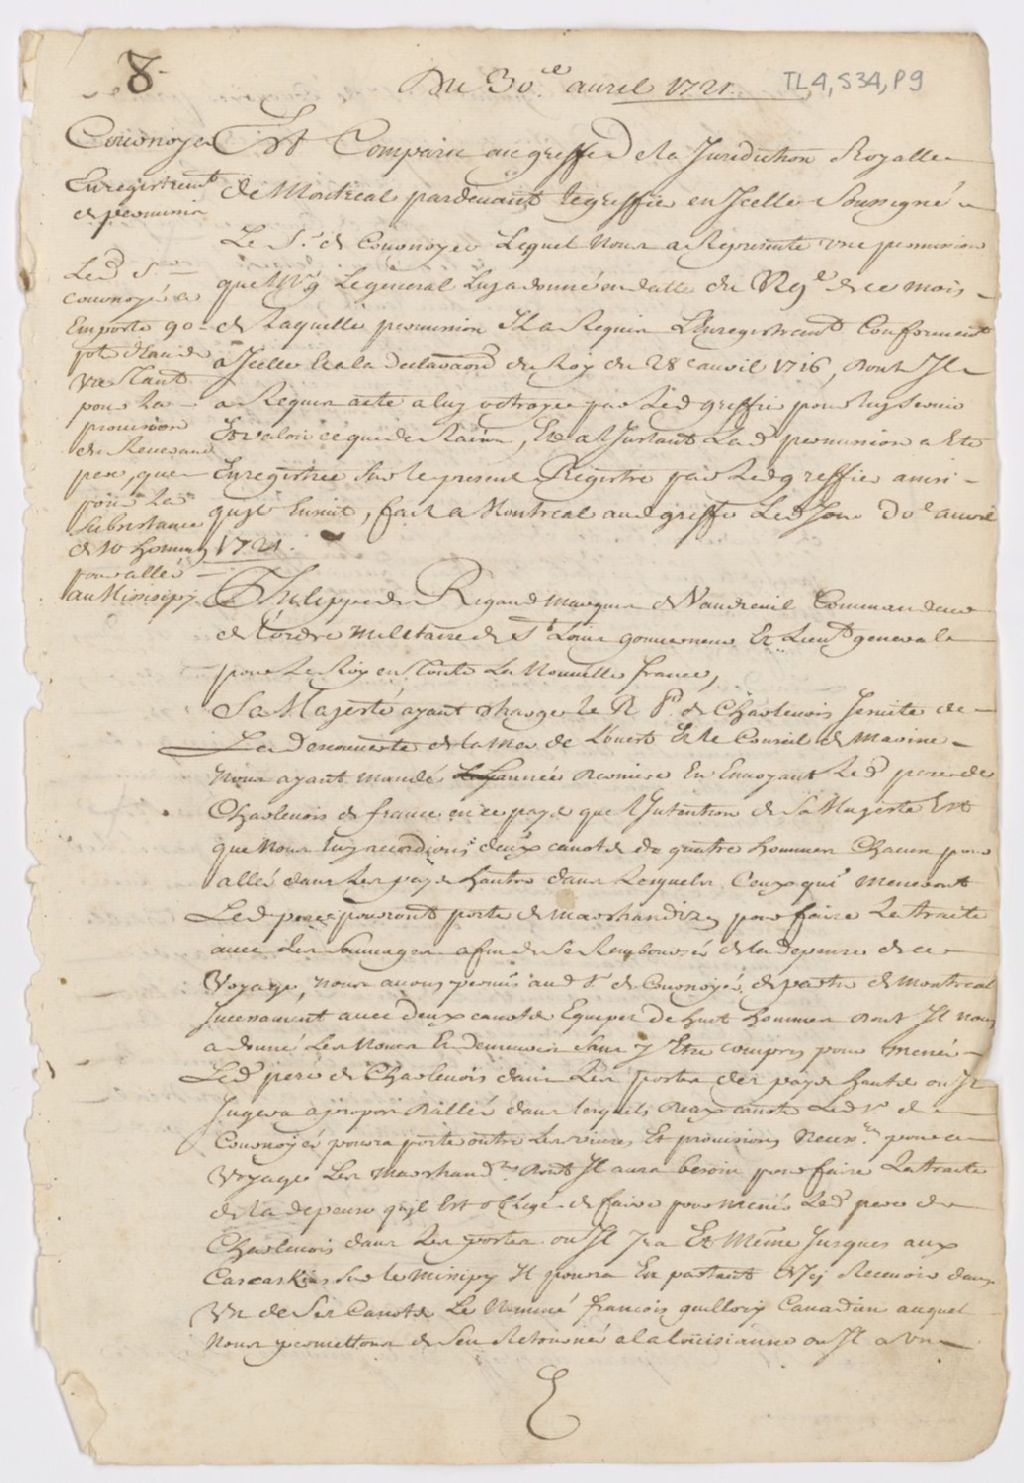 8
Du 30.e avril 1721.
TL4, S34, P9
Cournoyer
Enregistremt
de permission
Led. Sr.
cournoyé a
Emporté 90
pots d'Eau de
vie Tant
pour La
provision
du Reverand
pere, que
pour La
subsistance
de 10 hommes
pour allér
au Missisipy
Est Comparu au greffe de la Juridiction Royalle
de Montreal pardevant le greffier en Icelle Soussigné
Le Sr. de Cournoyer Lequel Nous a Représenté une permission
que M. Le general Luy a donné en datte du 29e de ce mois
de Laquelle permission Il a Requis L'Enregistremt Conforment
a Icelle Et a la declaraõn du Roy du 28e avril 1716, dont Il
a Requis acte a luy octroyée par Led. greffier pour luy Servir
Et valoir ce que de Raison, Et a L'Instant Lad. permission a Eté
Enregistrée Sur le present Registre par Led. greffier ainsi
qu'il Ensuit, fait a Montreal aud. greffe Led. Jour 30e avril
1721.
Philippe de Rigaud Marquis de Vaudreuil Commandeur
de L'ordre Militaire de St. Louis gouverneur Et Lieut. general
pour Le Roy en Toute La Nouvelle france,
Sa Majesté ayant chargé le R. Pr. de Charlevoix Jesuite de
La Decouverte de la Mer de L'ouest Et le Conseil de Marine
Nous ayant mandé L'année derniere En Envoyant Led. pere de
Charlevoix de france en ce pays que L'Intention de Sa Majesté Est
que Nous luy accordions deux canots de quatre hommes Chacun pour
allér dans Les pays hauts dans Lesquels Ceux qui meneront
Led. pere pouront porter de Marchandizes pour faire La traite
avec Les Sauvages afin de Se Rembourcér de la depense de ce
Voyage, Nous avons permis aud. Sr. de Cournoyér de partir de Montreal
Incessament avec deux canots Equipez de huit hommes dont Il nous
a donné Les Noms Et demeures Sans y Etre compris pour mener
Led. pere de Charlevoix dans Les postes des pays hauts ou Il
Jugera apropos d'allér dans lesquels deux canots Led. Sr. de
Cournoyér poura porter outre Les vivres Et provisions Necess.res pour ce
Voyage Les Marchand.es dont Il aura besoin pour faire La traite
de la depense qu'il Est obligé de faire pour menér Led. pere de
Charlevoix dans Les postes ou Il Ira Et Même Jusques aux
Cascaskias Sur le Missipy Il poura En partant d'Icy Recevoir dans
Un de Ses Canots Le Nommé francois guillory Canadien auquel
Nous permettons de S'en Retourner a la Loüisianne ou Il a Un